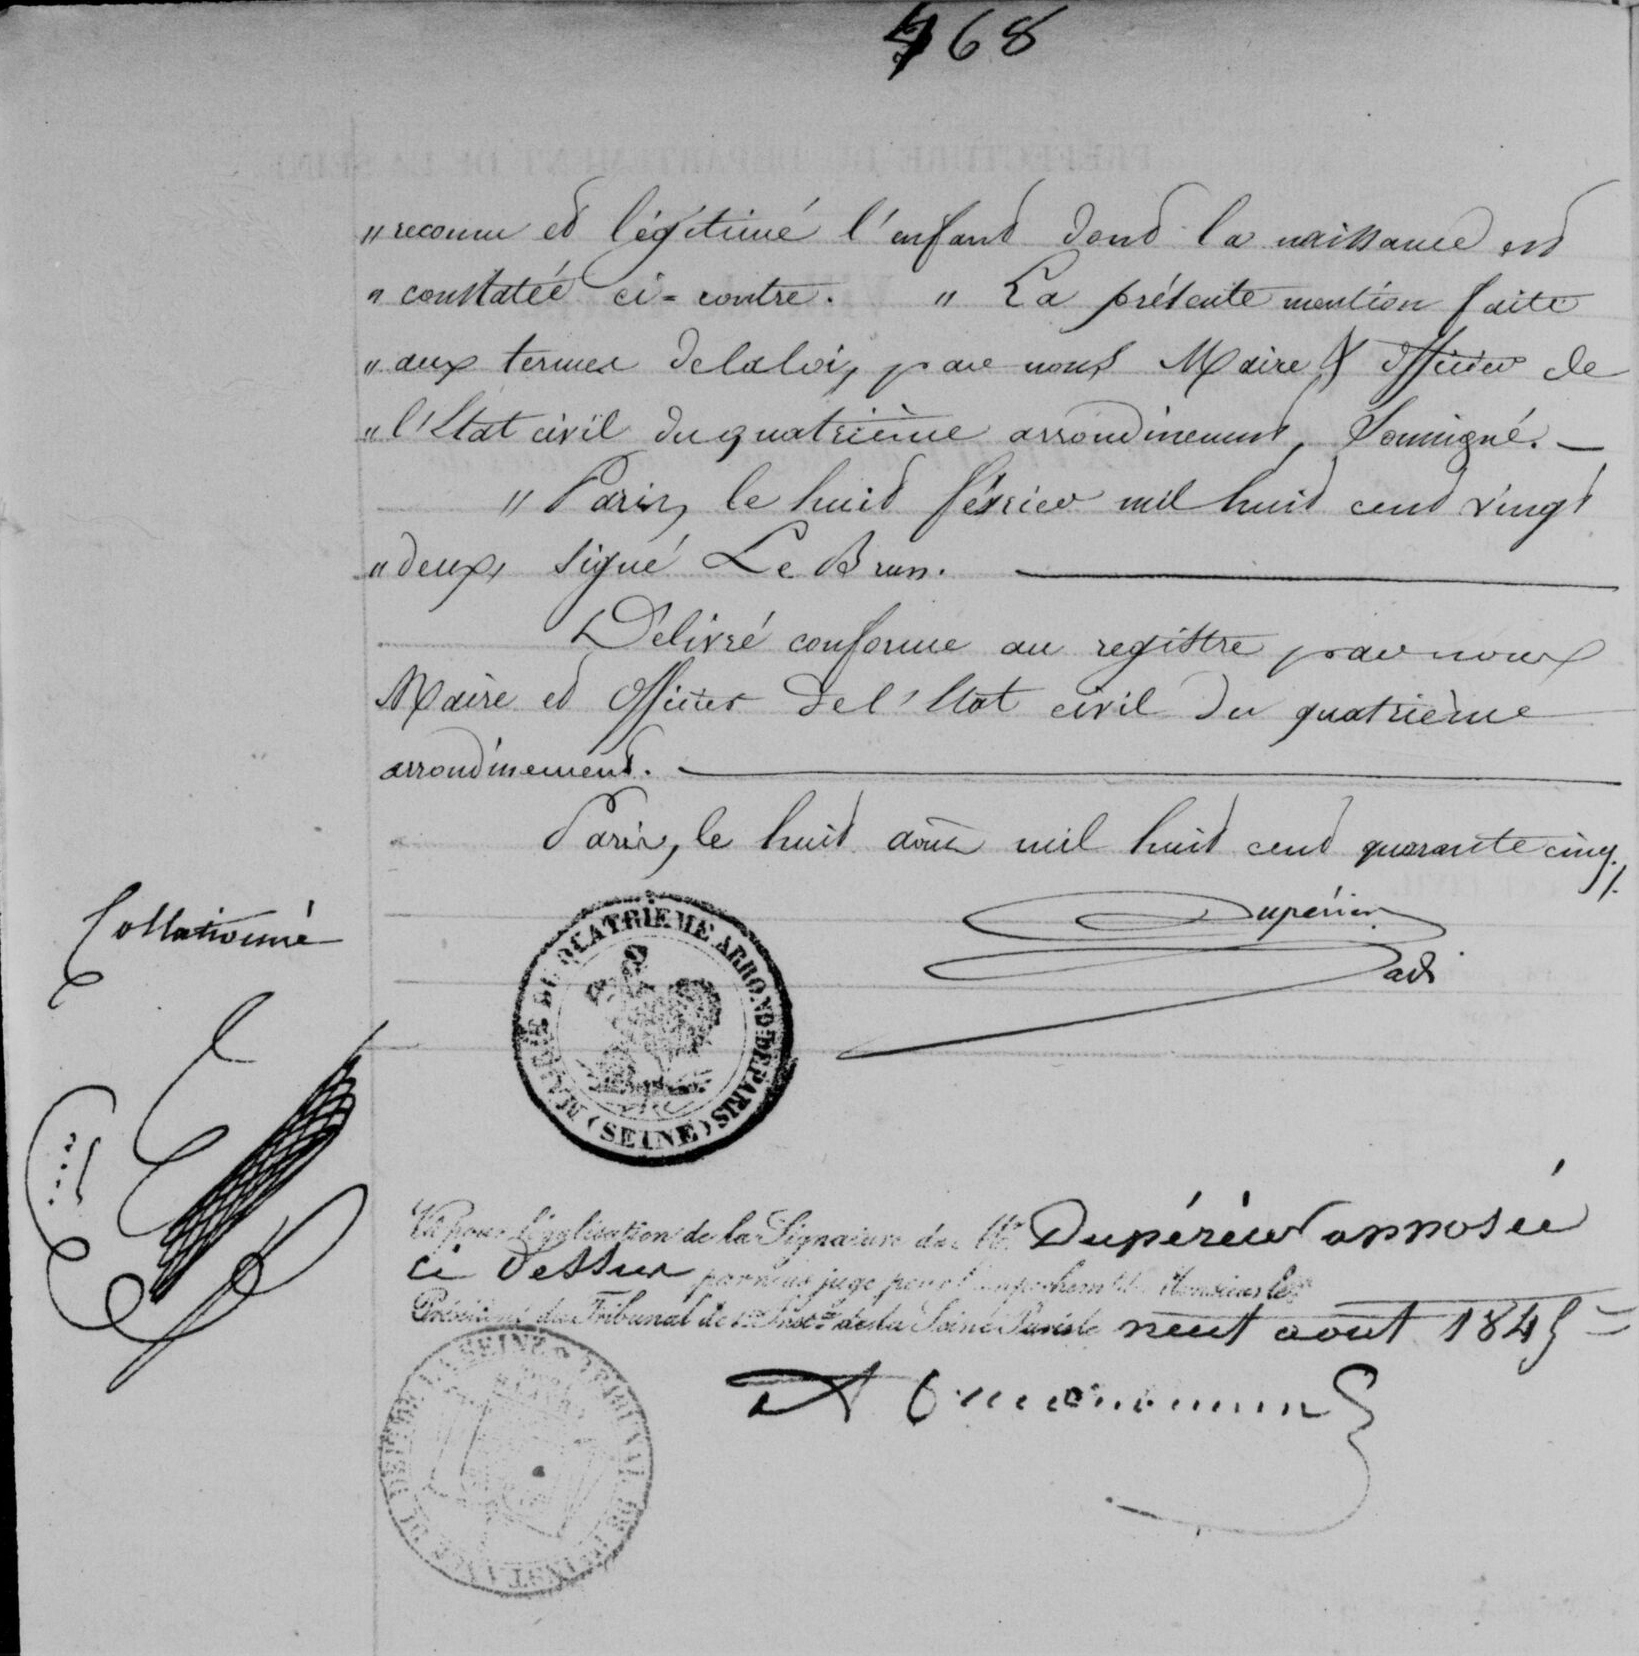 768
„ reconnu et légitimé l'enfant dont la naissance est
„ constatée ci=contre. „ La présente mention faite
„ aux termes de la loi, par nous Maire & officier de
„ l'Etat civil du quatrième arrondissement, soussigné. —
„ Paris, le huit février mil huit cent vingt
„ deux, signé Le Brun. —
Délivré conforme au registre par nous
Maire et officier de l'Etat civil du quatrième
arrondissement. —
Paris, le huit août mil huit cent quarante cinq ./.
Collationné
Dupérier
MAIRIE DU QUATRIEME ARROND. DE PARIS (SEINE)
Vu pour légalisation de la Signature de Mr Dupérier apposée
ci dessus par nous juge pour l'empechemt de Monsieur le
Président du Tribunal de 1re Instce de la Seine Paris le neuf aout 1845